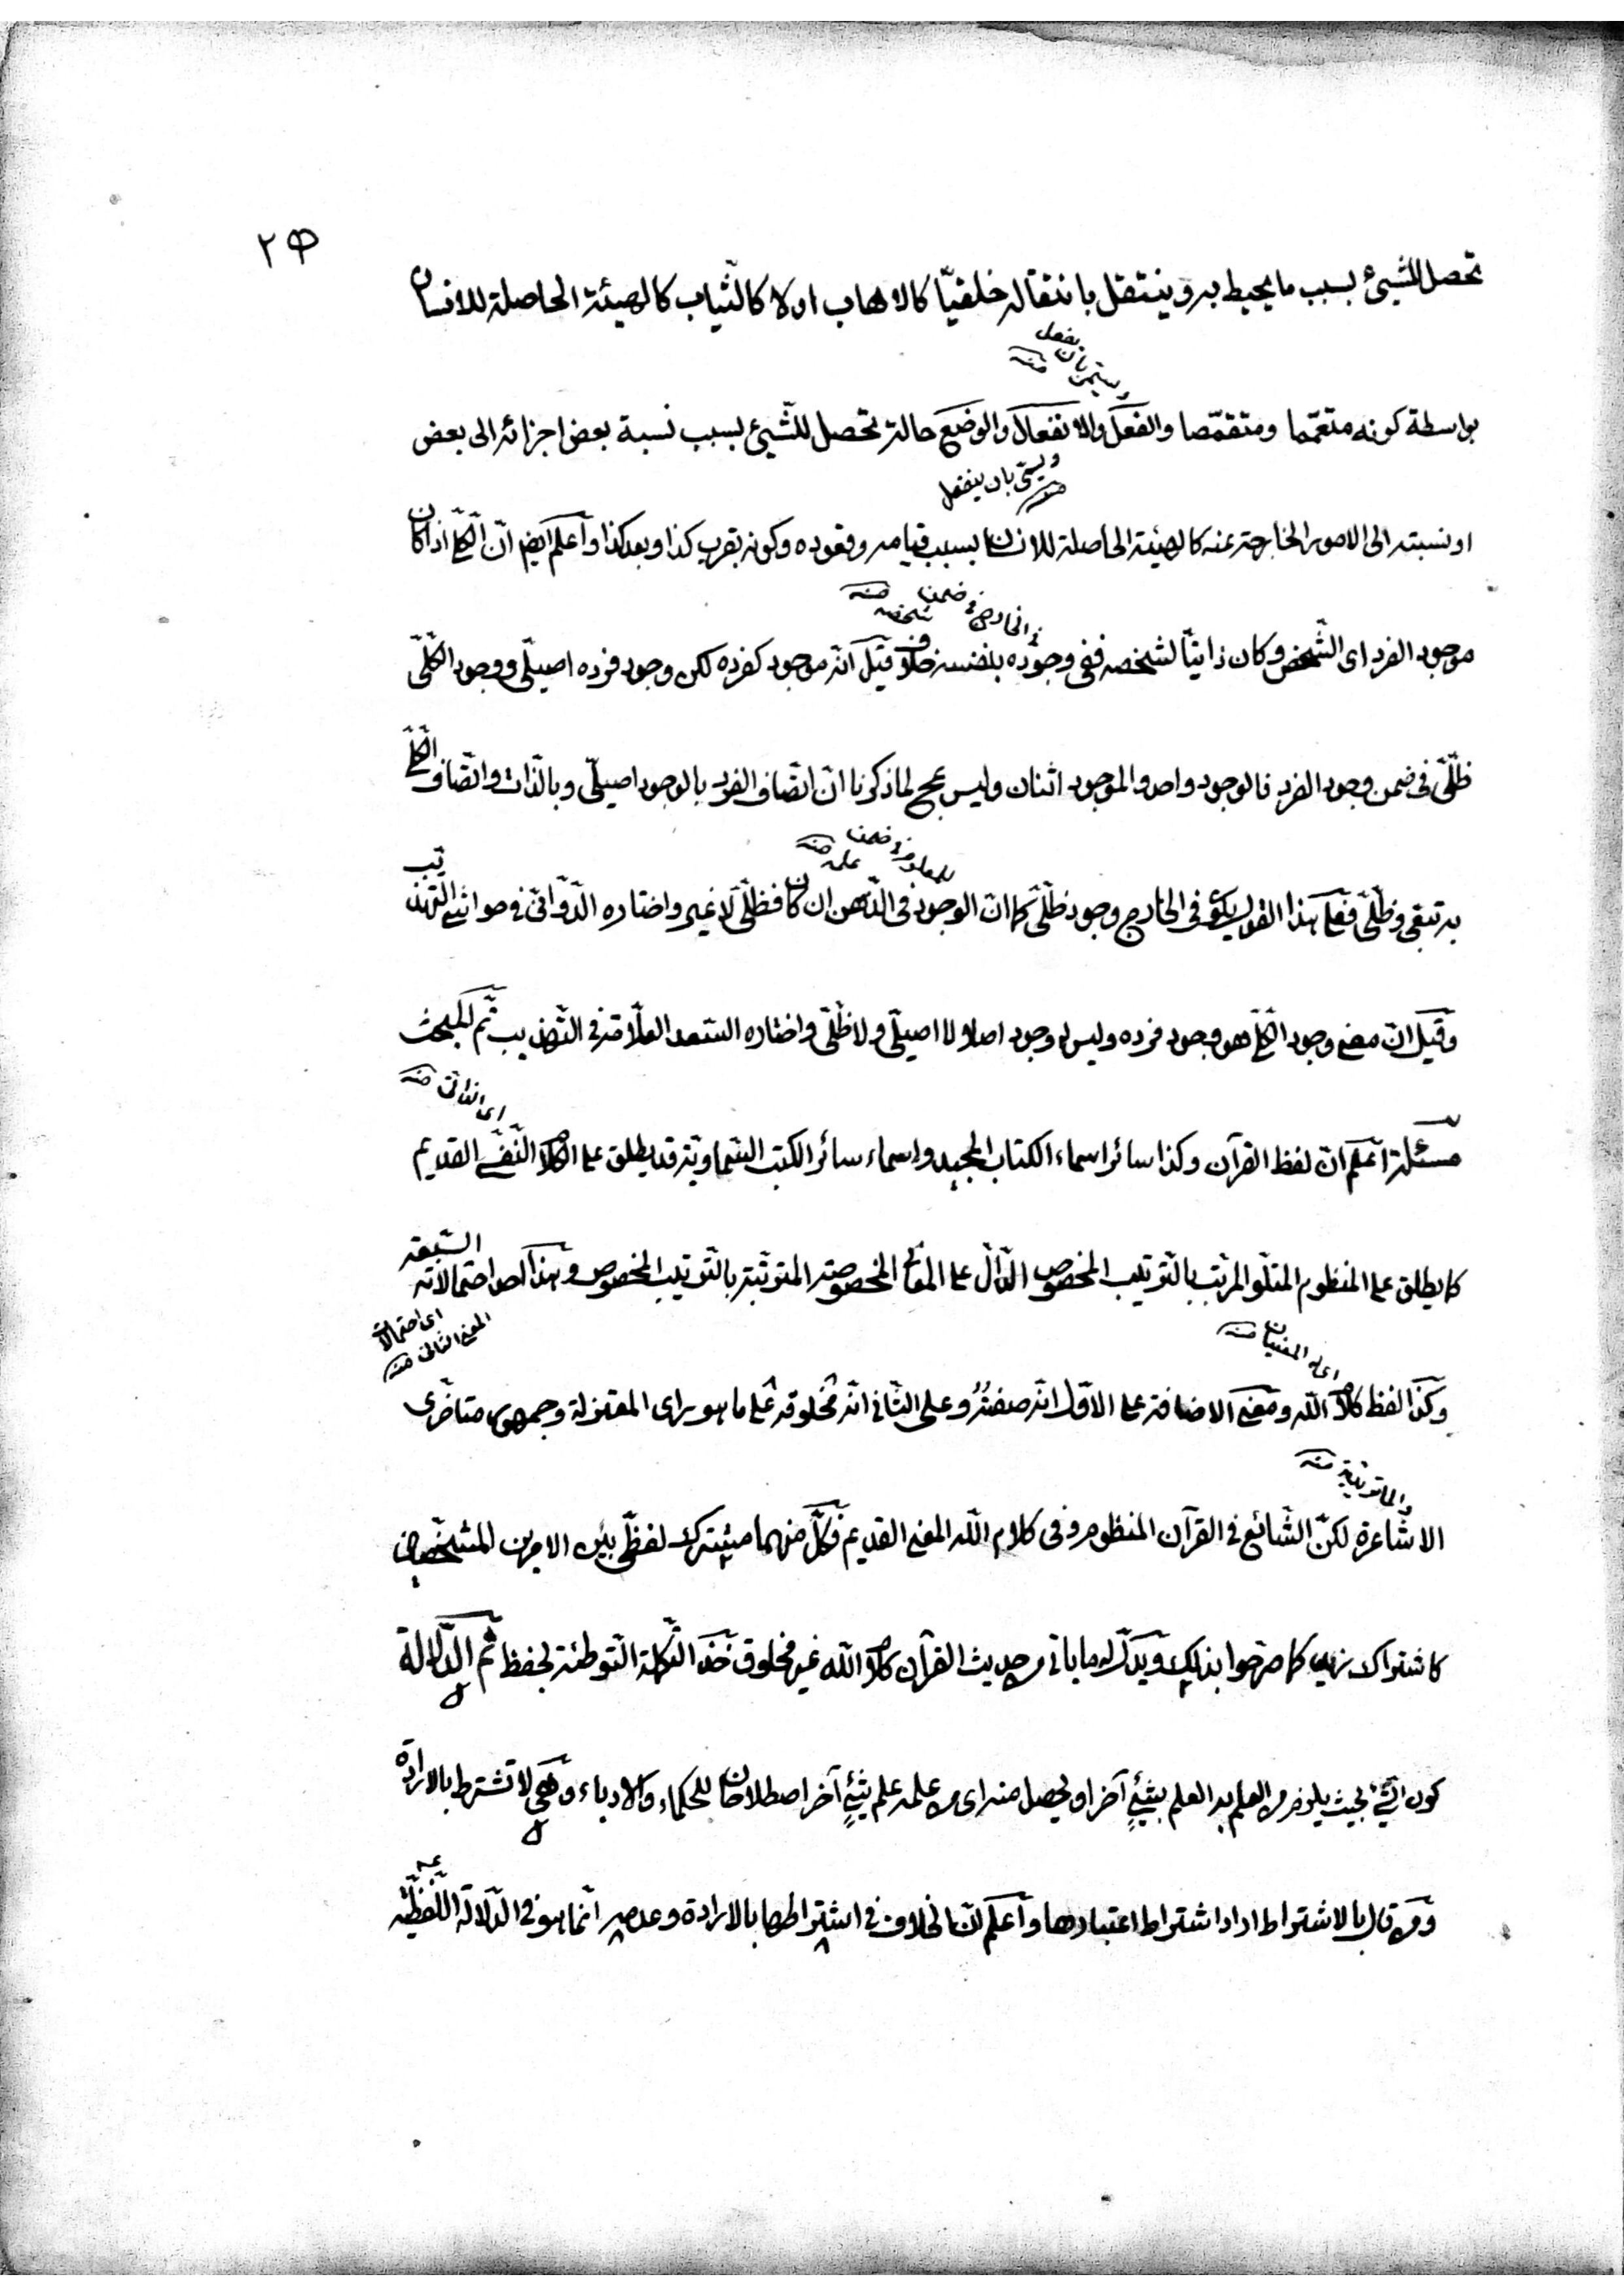 ٢٥
تحصل للشيئ بسبب ما يحيط به وينتقل بانتقاله خلقيّا كالاهاب او لا كالثّياب كالهيئة الحاصلة للانسان
ويسمّى بان يفعل منه
بواسطة كونه متعمّما ومتقمّصا والفعل والانفعال والوضع حالة تحصل للشّيئ بسبب نسبة بعض اجزائه الى بعض
ويسمّى بان ينفعل منه
او نسبته الى الامور الخارجة عنه كالهيئة الحاصلة للانسان بسبب قيامه وقعوده وكونه بقرب كذا وبعد كذا واعلم ايضا انّ الكلّي اذا كان
في الخارج في ضمن شخصه منه
موجود الفرد اى الشّخص وكان ذاتيّا لشخصه ففى وجوده بنفسه خلاف قيل انّه موجود كفرده لكن وجود فرده اصيلّى ووجود الكلّىّ
ظلّىّ فى ضمن وجود الفرد فالوجود واحد والموجود اثنان وليس بمح لما ذكرنا انّ اتّصاف الفرد بالوجود اصيلّى وبالذّات واتّصاف الكلّي
للمعلوم في ضمن علمه منه
به تبعى وظلّىّ فعلى هذا القول يكون فى الخارج وجود ظلّىّ كما انّ الوجود فى الذّهن ان كان فظلّىّ لا غير واختاره الدّوّانىّ فى حواشى التهذيب
وقيل انّ معنى وجود الكلّي هو وجود فرده وليس له وجود اصلا لا اصيلّى ولا ظلّىّ واختاره السّعد العلّامة فى التّهذيب ثمّ المبحث
اى الذاتى منه
مسئلة اعلم انّ لفظ القرآن وكذا سائر اسماء الكتاب المجيد واسماء سائر الكتب السّماويّة قد يطلق على الكلام النّفسى القديم
كما يطلق على المنظوم المتلو المرتّب بالتّرتيب المخصوص الدّالّ على المعانى المخصوصة المترتّبة بالتّرتيب المخصوص وهذا احد احتمالاته السّبعة
اى احتمالات المعنى الثانى منه
اى له المعنيان منه
وكذا لفظ كلام اللّه ومعنى الاضافة على الاوّل انّه صفته وعلى الثّانى انّه مخلوقه على ما هو راى المعتزلة وجمهور متاخّرى
والماتريدية منه
الاشاعرة لكنّ الشّائع فى القرآن المنظوم وفى كلام اللّه المعنى القديم فكلّ منهما مشترك لفظىّ بين الامرين المشخّصين
كاشتراك زيد كما صرّحوا بذلك ويدلّ له ما ياتى من حديث القرآن كلام اللّه غير مخلوق خذ التّكملة التّوطئة لحفظ ثمّ الدّلالة
كون الشّئ بحيث يلزم من العلم به العلم بشئٍ آخر او يحصل منه اى من علمه علم شئٍ آخر اصطلاحان للحكماء والادباء وهى لا تشترط بالارادة
ومن قال بالاشتراط اراد اشتراط اعتبارها واعلم انّ الخلاف فى اشتراطها بالارادة وعدمه انّما هو فى الدّلالة اللّفظيّة